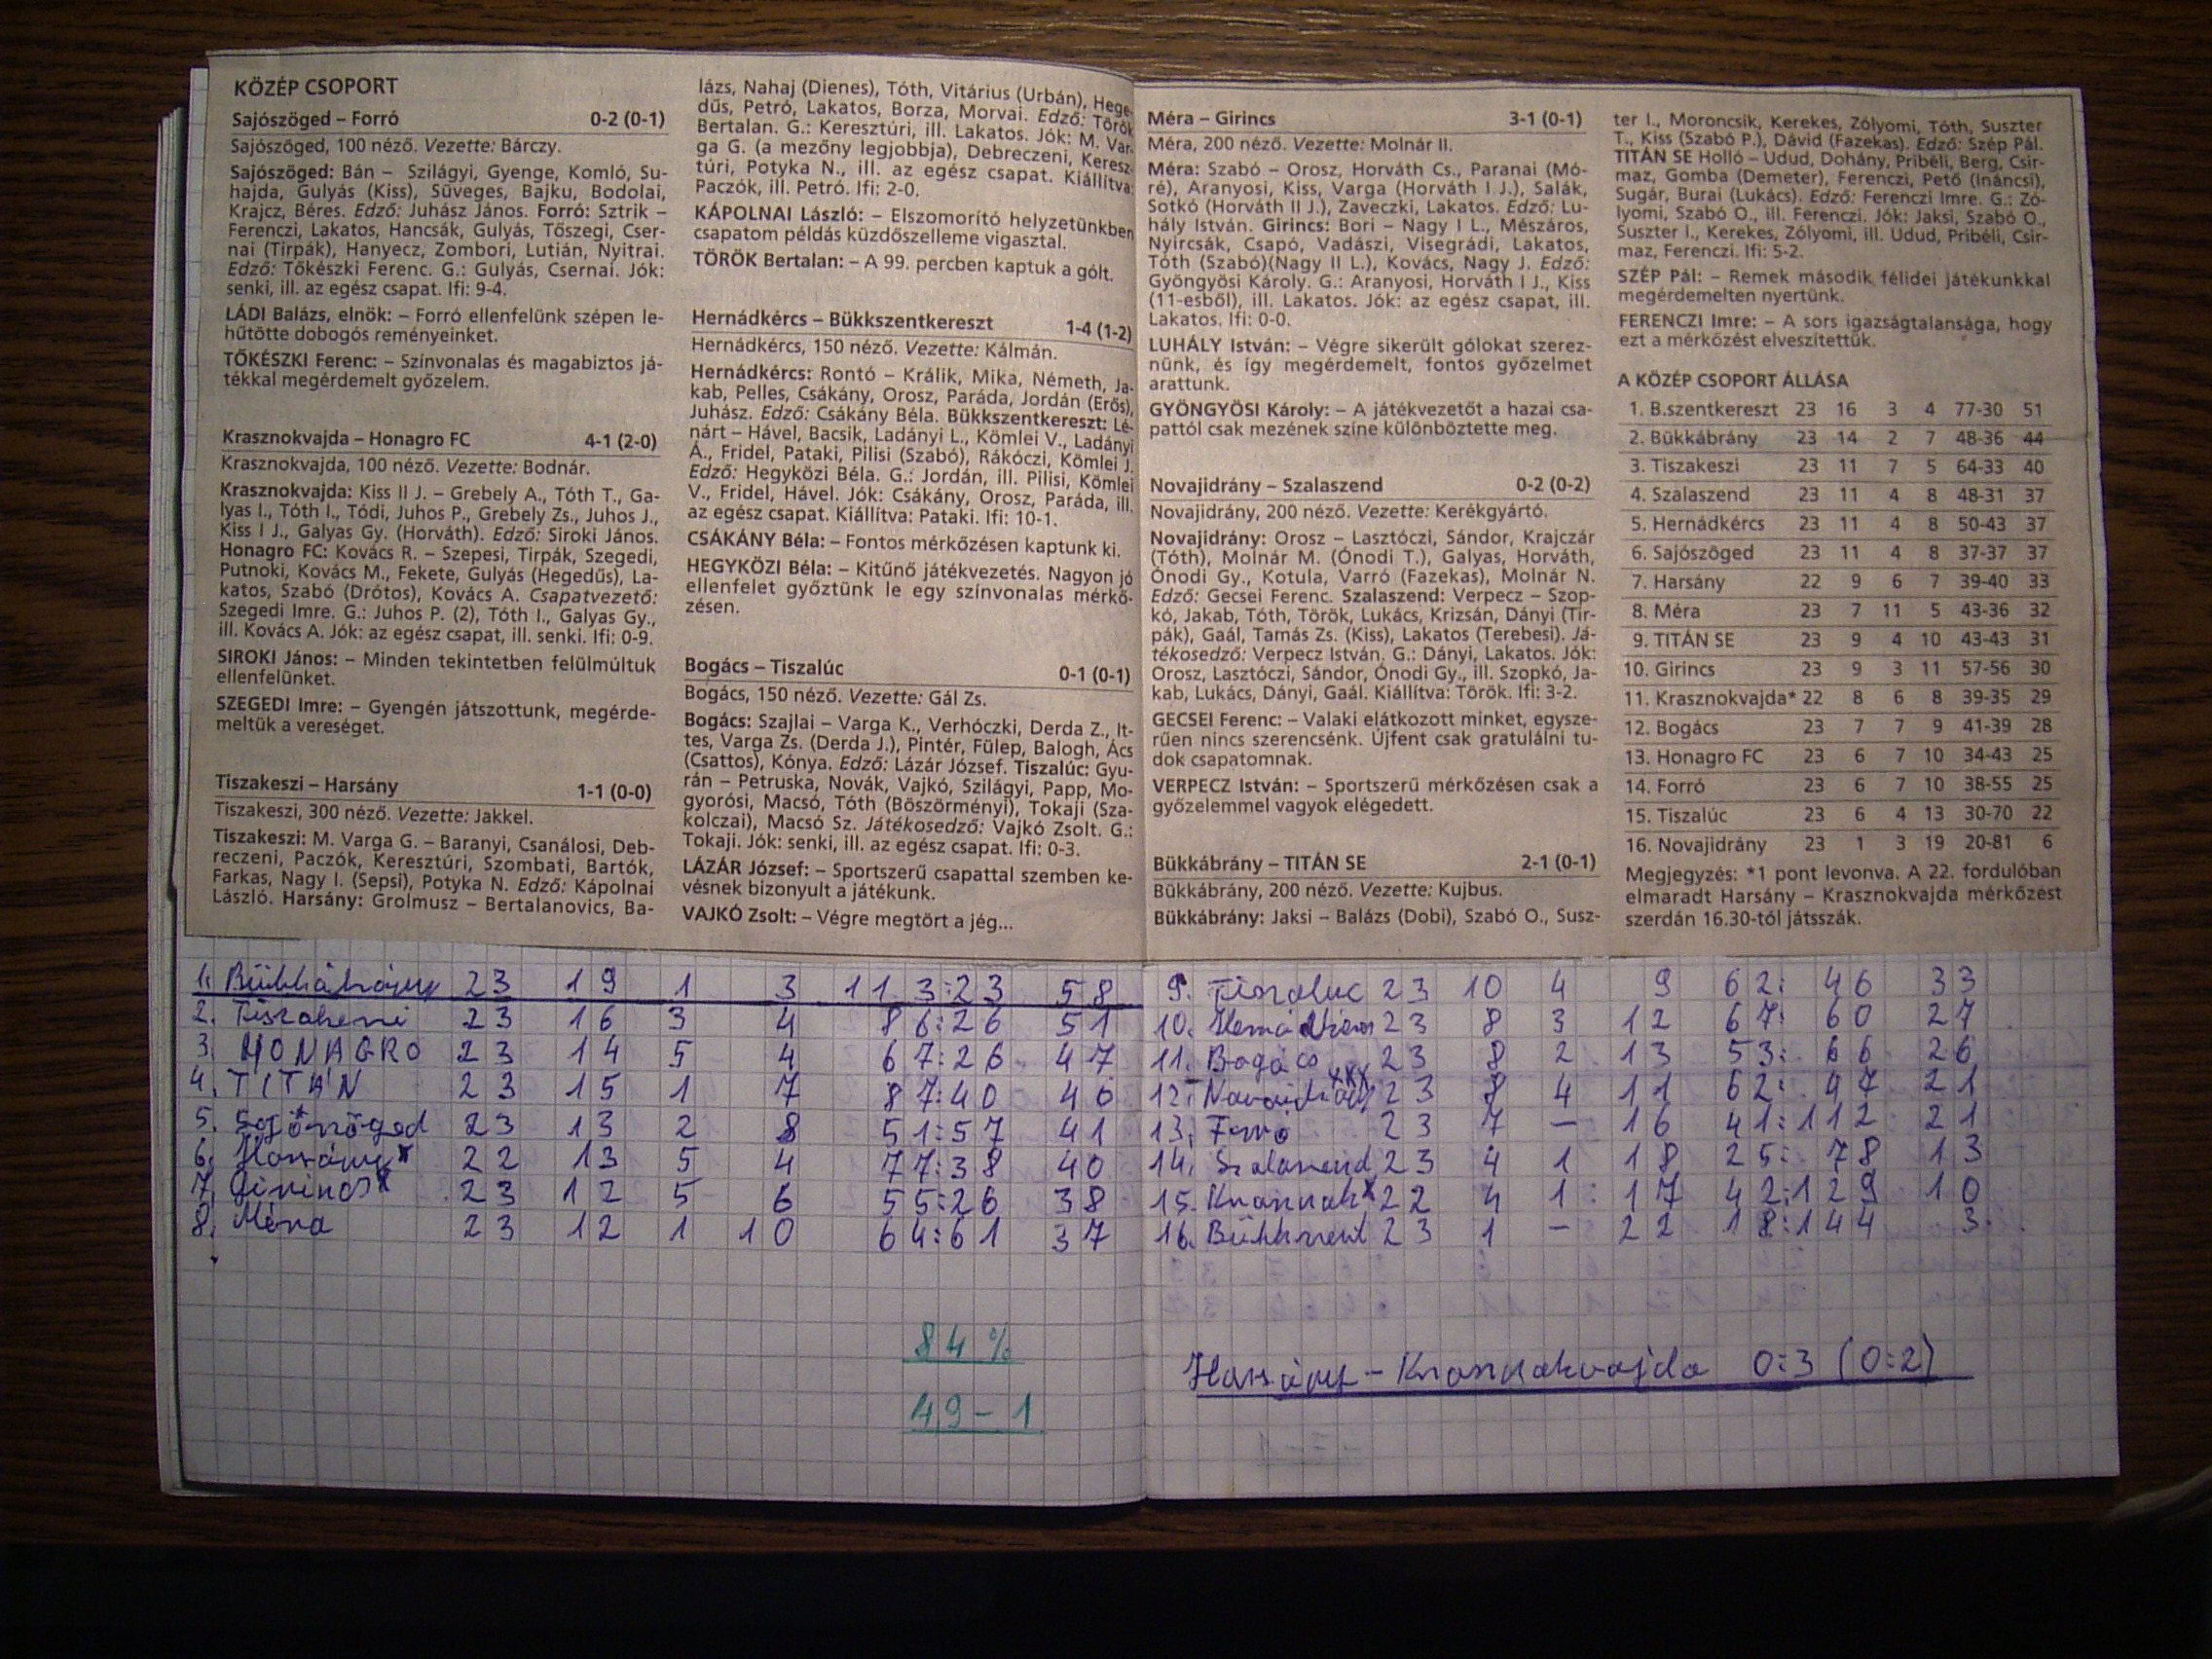 KÖZÉP CSOPORT
Sajószöged – Forró 0-2 (0-1)
Sajószöged, 100 néző. Vezette: Bárczy.
Sajószöged: Bán – Szilágyi, Gyenge, Komló, Su-
hajda, Gulyás (Kiss), Süveges, Bajku, Bodolai,
Krajcz, Béres. Edző: Juhász János. Forró: Sztrik –
Ferenczi, Lakatos, Hancsák, Gulyás, Tőszegi, Cser-
nai (Tirpák), Hanyecz, Zombori, Lutián, Nyitrai.
Edző: Tőkészki Ferenc. G.: Gulyás, Csernai. Jók:
senki, ill. az egész csapat. Ifi: 9-4.
LÁDI Balázs, elnök: – Forró ellenfelünk szépen le-
hűtötte dobogós reményeinket.
TŐKÉSZKI Ferenc: – Színvonalas és magabiztos já-
tékkal megérdemelt győzelem.
Krasznokvajda – Honagro FC 4-1 (2-0)
Krasznokvajda, 100 néző. Vezette: Bodnár.
Krasznokvajda: Kiss II J. – Grebely A., Tóth T., Ga-
lyas I., Tóth I., Tódi, Juhos P., Grebely Zs., Juhos J.,
Kiss I J., Galyas Gy. (Horváth). Edző: Siroki János.
Honagro FC: Kovács R. – Szepesi, Tirpák, Szegedi,
Putnoki, Kovács M., Fekete, Gulyás (Hegedűs), La-
katos, Szabó (Drótos), Kovács A. Csapatvezető:
Szegedi Imre. G.: Juhos P. (2), Tóth I., Galyas Gy.,
ill. Kovács A. Jók: az egész csapat, ill. senki. Ifi: 0-9.
SIROKI János: – Minden tekintetben felülmúltuk
ellenfelünket.
SZEGEDI Imre: – Gyengén játszottunk, megérde-
meltük a vereséget.
Tiszakeszi – Harsány 1-1 (0-0)
Tiszakeszi, 300 néző. Vezette: Jakkel.
Tiszakeszi: M. Varga G. – Baranyi, Csanálosi, Deb-
reczeni, Paczók, Keresztúri, Szombati, Bartók,
Farkas, Nagy I. (Sepsi), Potyka N. Edző: Kápolnai
László. Harsány: Grolmusz – Bertalanovics, Ba-
lázs, Nahaj (Dienes), Tóth, Vitárius (Urbán), Hege-
dűs, Petró, Lakatos, Borza, Morvai. Edző: Török
Bertalan. G.: Keresztúri, ill. Lakatos. Jók: M. Var-
ga G. (a mezőny legjobbja), Debreczeni, Keresz-
túri, Potyka N., ill. az egész csapat. Kiállítva:
Paczók, ill. Petró. Ifi: 2-0.
KÁPOLNAI László: – Elszomorító helyzetünkben
csapatom példás küzdőszelleme vigasztal.
TÖRÖK Bertalan: – A 99. percben kaptuk a gólt.
Hernádkércs – Bükkszentkereszt 1-4 (1-2)
Hernádkércs, 150 néző. Vezette: Kálmán.
Hernádkércs: Rontó – Králik, Mika, Németh, Ja-
kab, Pelles, Csákány, Orosz, Paráda, Jordán (Erős),
Juhász. Edző: Csákány Béla. Bükkszentkereszt: Lé-
nárt – Hável, Bacsik, Ladányi L., Kömlei V., Ladányi
A., Fridel, Pataki, Pilisi (Szabó), Rákóczi, Kömlei J.
Edző: Hegyközi Béla. G.: Jordán, ill. Pilisi, Kömlei
V., Fridel, Hável. Jók: Csákány, Orosz, Paráda, ill.
az egész csapat. Kiállítva: Pataki. Ifi: 10-1.
CSÁKÁNY Béla: – Fontos mérkőzésen kaptunk ki.
HEGYKÖZI Béla: – Kitűnő játékvezetés. Nagyon jó
ellenfelet győztünk le egy színvonalas mérkő-
zésen.
Bogács – Tiszalúc 0-1 (0-1)
Bogács, 150 néző. Vezette: Gál Zs.
Bogács: Szajlai – Varga K., Verhóczki, Derda Z., It-
tes, Varga Zs. (Derda J.), Pintér, Fülep, Balogh, Ács
(Csattos), Kónya. Edző: Lázár József. Tiszalúc: Gyu-
rán – Petruska, Novák, Vajkó, Szilágyi, Papp, Mo-
gyorósi, Macsó, Tóth (Böszörményi), Tokaji (Sza-
kolczai), Macsó Sz. Játékosedző: Vajkó Zsolt. G.:
Tokaji. Jók: senki, ill. az egész csapat. Ifi: 0-3.
LÁZÁR József: – Sportszerű csapattal szemben ke-
vésnek bizonyult a játékunk.
VAJKÓ Zsolt: – Végre megtört a jég...
Méra – Girincs 3-1 (0-1)
Méra, 200 néző. Vezette: Molnár II.
Méra: Szabó – Orosz, Horváth Cs., Paranai (Mó-
ré), Aranyosi, Kiss, Varga (Horváth I J.), Salák,
Sotkó (Horváth II J.), Zaveczki, Lakatos. Edző: Lu-
hály István. Girincs: Bori – Nagy I L., Mészáros,
Nyircsák, Csapó, Vadászi, Visegrádi, Lakatos,
Tóth (Szabó)(Nagy II L.), Kovács, Nagy J. Edző:
Gyöngyösi Károly. G.: Aranyosi, Horváth I J., Kiss
(11-esből), ill. Lakatos. Jók: az egész csapat, ill.
Lakatos. Ifi: 0-0.
LUHÁLY István: – Végre sikerült gólokat szerez-
nünk, és így megérdemelt, fontos győzelmet
arattunk.
GYÖNGYÖSI Károly: – A játékvezetőt a hazai csa-
pattól csak mezének színe különböztette meg.
Novajidrány – Szalaszend 0-2 (0-2)
Novajidrány, 200 néző. Vezette: Kerékgyártó.
Novajidrány: Orosz – Lasztóczi, Sándor, Krajczár
(Tóth), Molnár M. (Ónodi T.), Galyas, Horváth,
Ónodi Gy., Kotula, Varró (Fazekas), Molnár N.
Edző: Gecsei Ferenc. Szalaszend: Verpecz – Szop-
kó, Jakab, Tóth, Török, Lukács, Krizsán, Dányi (Tir-
pák), Gaál, Tamás Zs. (Kiss), Lakatos (Terebesi). Já-
tékosedző: Verpecz István. G.: Dányi, Lakatos. Jók:
Orosz, Lasztóczi, Sándor, Ónodi Gy., ill. Szopkó, Ja-
kab, Lukács, Dányi, Gaál. Kiállítva: Török. Ifi: 3-2.
GECSEI Ferenc: – Valaki elátkozott minket, egysze-
rűen nincs szerencsénk. Újfent csak gratulálni tu-
dok csapatomnak.
VERPECZ István: – Sportszerű mérkőzésen csak a
győzelemmel vagyok elégedett.
Bükkábrány – TITÁN SE 2-1 (0-1)
Bükkábrány, 200 néző. Vezette: Kujbus.
Bükkábrány: Jaksi – Balázs (Dobi), Szabó O., Susz-
ter I., Moroncsik, Kerekes, Zólyomi, Tóth, Suszter
T., Kiss (Szabó P.), Dávid (Fazekas). Edző: Szép Pál.
TITÁN SE Holló – Udud, Dohány, Pribéli, Berg, Csir-
maz, Gomba (Demeter), Ferenczi, Pető (Ináncsi),
Sugár, Burai (Lukács). Edző: Ferenczi Imre. G.: Zó-
lyomi, Szabó O., ill. Ferenczi. Jók: Jaksi, Szabó O.,
Suszter I., Kerekes, Zólyomi, ill. Udud, Pribéli, Csir-
maz, Ferenczi. Ifi: 5-2.
SZÉP Pál: – Remek második félidei játékunkkal
megérdemelten nyertünk.
FERENCZI Imre: – A sors igazságtalansága, hogy
ezt a mérkőzést elveszítettük.
A KÖZÉP CSOPORT ÁLLÁSA
1. B.szentkereszt 23 16 3 4 77-30 51
2. Bükkábrány 23 14 2 7 48-36 44
3. Tiszakeszi 23 11 7 5 64-33 40
4. Szalaszend 23 11 4 8 48-31 37
5. Hernádkércs 23 11 4 8 50-43 37
6. Sajószöged 23 11 4 8 37-37 37
7. Harsány 22 9 6 7 39-40 33
8. Méra 23 7 11 5 43-36 32
9. TITÁN SE 23 9 4 10 43-43 31
10. Girincs 23 9 3 11 57-56 30
11. Krasznokvajda* 22 8 6 8 39-35 29
12. Bogács 23 7 7 9 41-39 28
13. Honagro FC 23 6 7 10 34-43 25
14. Forró 23 6 7 10 38-55 25
15. Tiszalúc 23 6 4 13 30-70 22
16. Novajidrány 23 1 3 19 20-81 6
Megjegyzés: *1 pont levonva. A 22. fordulóban
elmaradt Harsány – Krasznokvajda mérkőzést
szerdán 16.30-tól játsszák.
1. Bükkábrány 23 19 1 3 113:23 58
2. Tiszakeszi 23 16 3 4 86:26 51
3. HONAGRO 23 14 5 4 67:26 47
4. TITÁN 23 15 1 7 87:40 46
5. Sajószöged 23 13 2 8 51:57 41
6. Harsány* 22 13 5 4 77:38 40
7. Girincs* 23 12 5 6 55:26 38
8. Méra 23 12 1 10 64:61 37
9. Tiszaluc 23 10 4 9 62:46 33
10. 23 8 3 12 67:60 27
11. Bogács 23 8 2 13 53:66 26
12. 23 8 4 11 62:47 21
13. Forró 23 7 – 16 41:112 21
14. Szalaszend 23 4 1 18 25:78 13
15. 22 4 1 17 42:129 10
16. Bükkszent 23 1 – 22 18:144 3
84 %
49 – 1
Harsány – Krasznokvajda 0:3 (0:2)